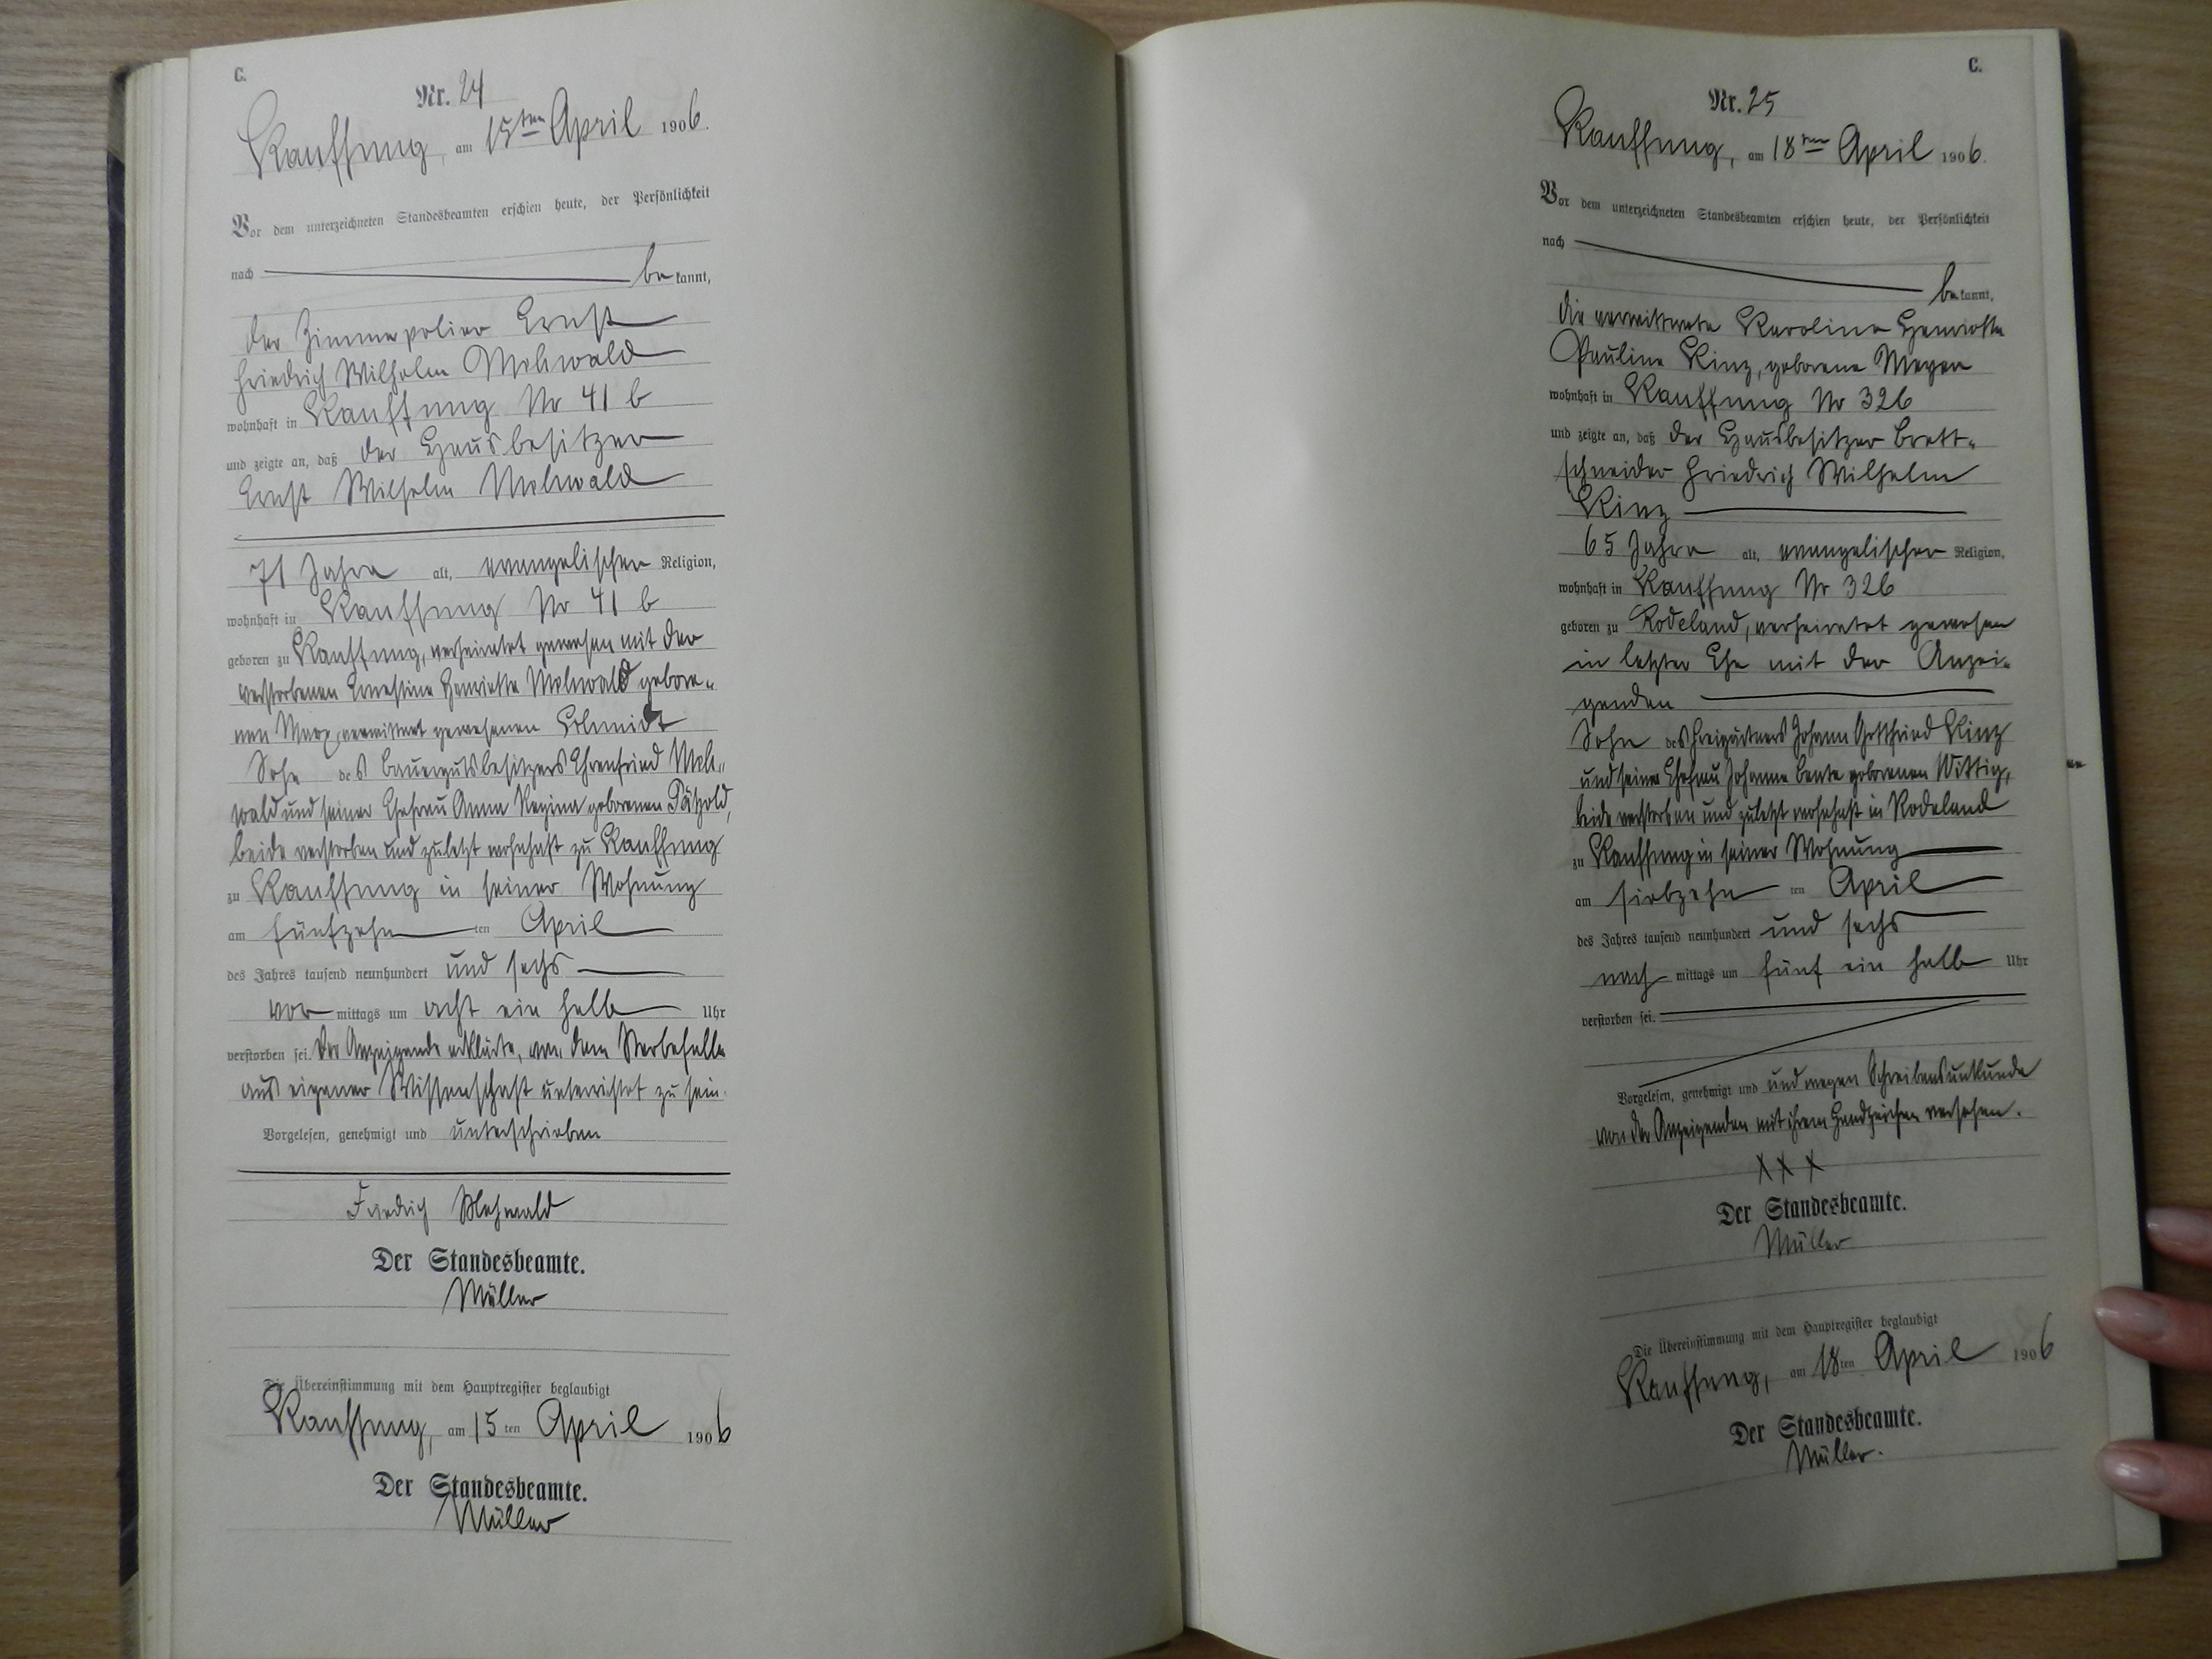 C.
Nr. 24
Kauffung, am 15ten April 1906.
Vor dem unterzeichneten Standesbeamten erschien heute, der Persönlichkeit
nach be kannt,
der Zimmerpolier Ernst
Friedrich Wilhelm Mehwald
wohnhaft in Kauffung Nr 41 b
und zeigte an, daß der Hausbesitzer
Ernst Wilhelm Mehwald
71 Jahre alt, evangelischer Religion,
wohnhaft in Kauffung Nr 41 b
geboren zu Kauffung, verheiratet gewesen mit der
verstorbenen Ernestine Henriette Mehwald gebore-
nen Marx, verwittwet gewesenen Schmidt
Sohn des Bauergutsbesitzers Ehrenfried Meh-
wald und seiner Ehefrau Anna Regina geborenen Pätzold,
beide verstorben und zuletzt wohnhaft zu Kauffung
zu Kauffung in seiner Wohnung
am fünfzehn ten April
des Jahres tausend neunhundert und sechs
vor mittags um acht ein halb Uhr
verstorben sei. Der Anzeigende erklärte, von dem Sterbefalle
aus eigener Wissenschaft unterrichtet zu sein.
Vorgelesen, genehmigt und unterschrieben
Friedrich Mehwald
Der Standesbeamte.
Müller
Die Übereinstimmung mit dem Hauptregister beglaubigt
Kauffung, am 15ten April 1906
Der Standesbeamte.
Müller
C.
Nr. 25
Kauffung, am 18ten April 1906.
Vor dem unterzeichneten Standesbeamten erschien heute, der Persönlichkeit
nach be kannt,
die verwittwete Karoline Henriette
Pauline Kinz, geborene Meyer
wohnhaft in Kauffung Nr 326
und zeigte an, daß der Hausbesitzer Brett-
schneider Friedrich Wilhelm
Kinz
65 Jahre alt, evangelischer Religion,
wohnhaft in Kauffung Nr 326
geboren zu Rodeland, verheiratet gewesen
in letzter Ehe mit der Anzei-
genden
Sohn des Freigärtners Johann Gottfried Kinz
und seiner Ehefrau Johanne Beate geborenen Wittig,
beide verstorben und zuletzt wohnhaft in Rodeland
zu Kauffung in seiner Wohnung
am siebzehn ten April
des Jahres tausend neunhundert und sechs
nach mittags um fünf ein halb Uhr
verstorben sei.
Vorgelesen, genehmigt und und wegen Schreibensunkunde
von der Anzeigenden mit ihrem Handzeichen versehen.
X X X
Der Standesbeamte.
Müller
Die Übereinstimmung mit dem Hauptregister beglaubigt
Kauffung, am 18ten April 1906
Der Standesbeamte.
Müller.